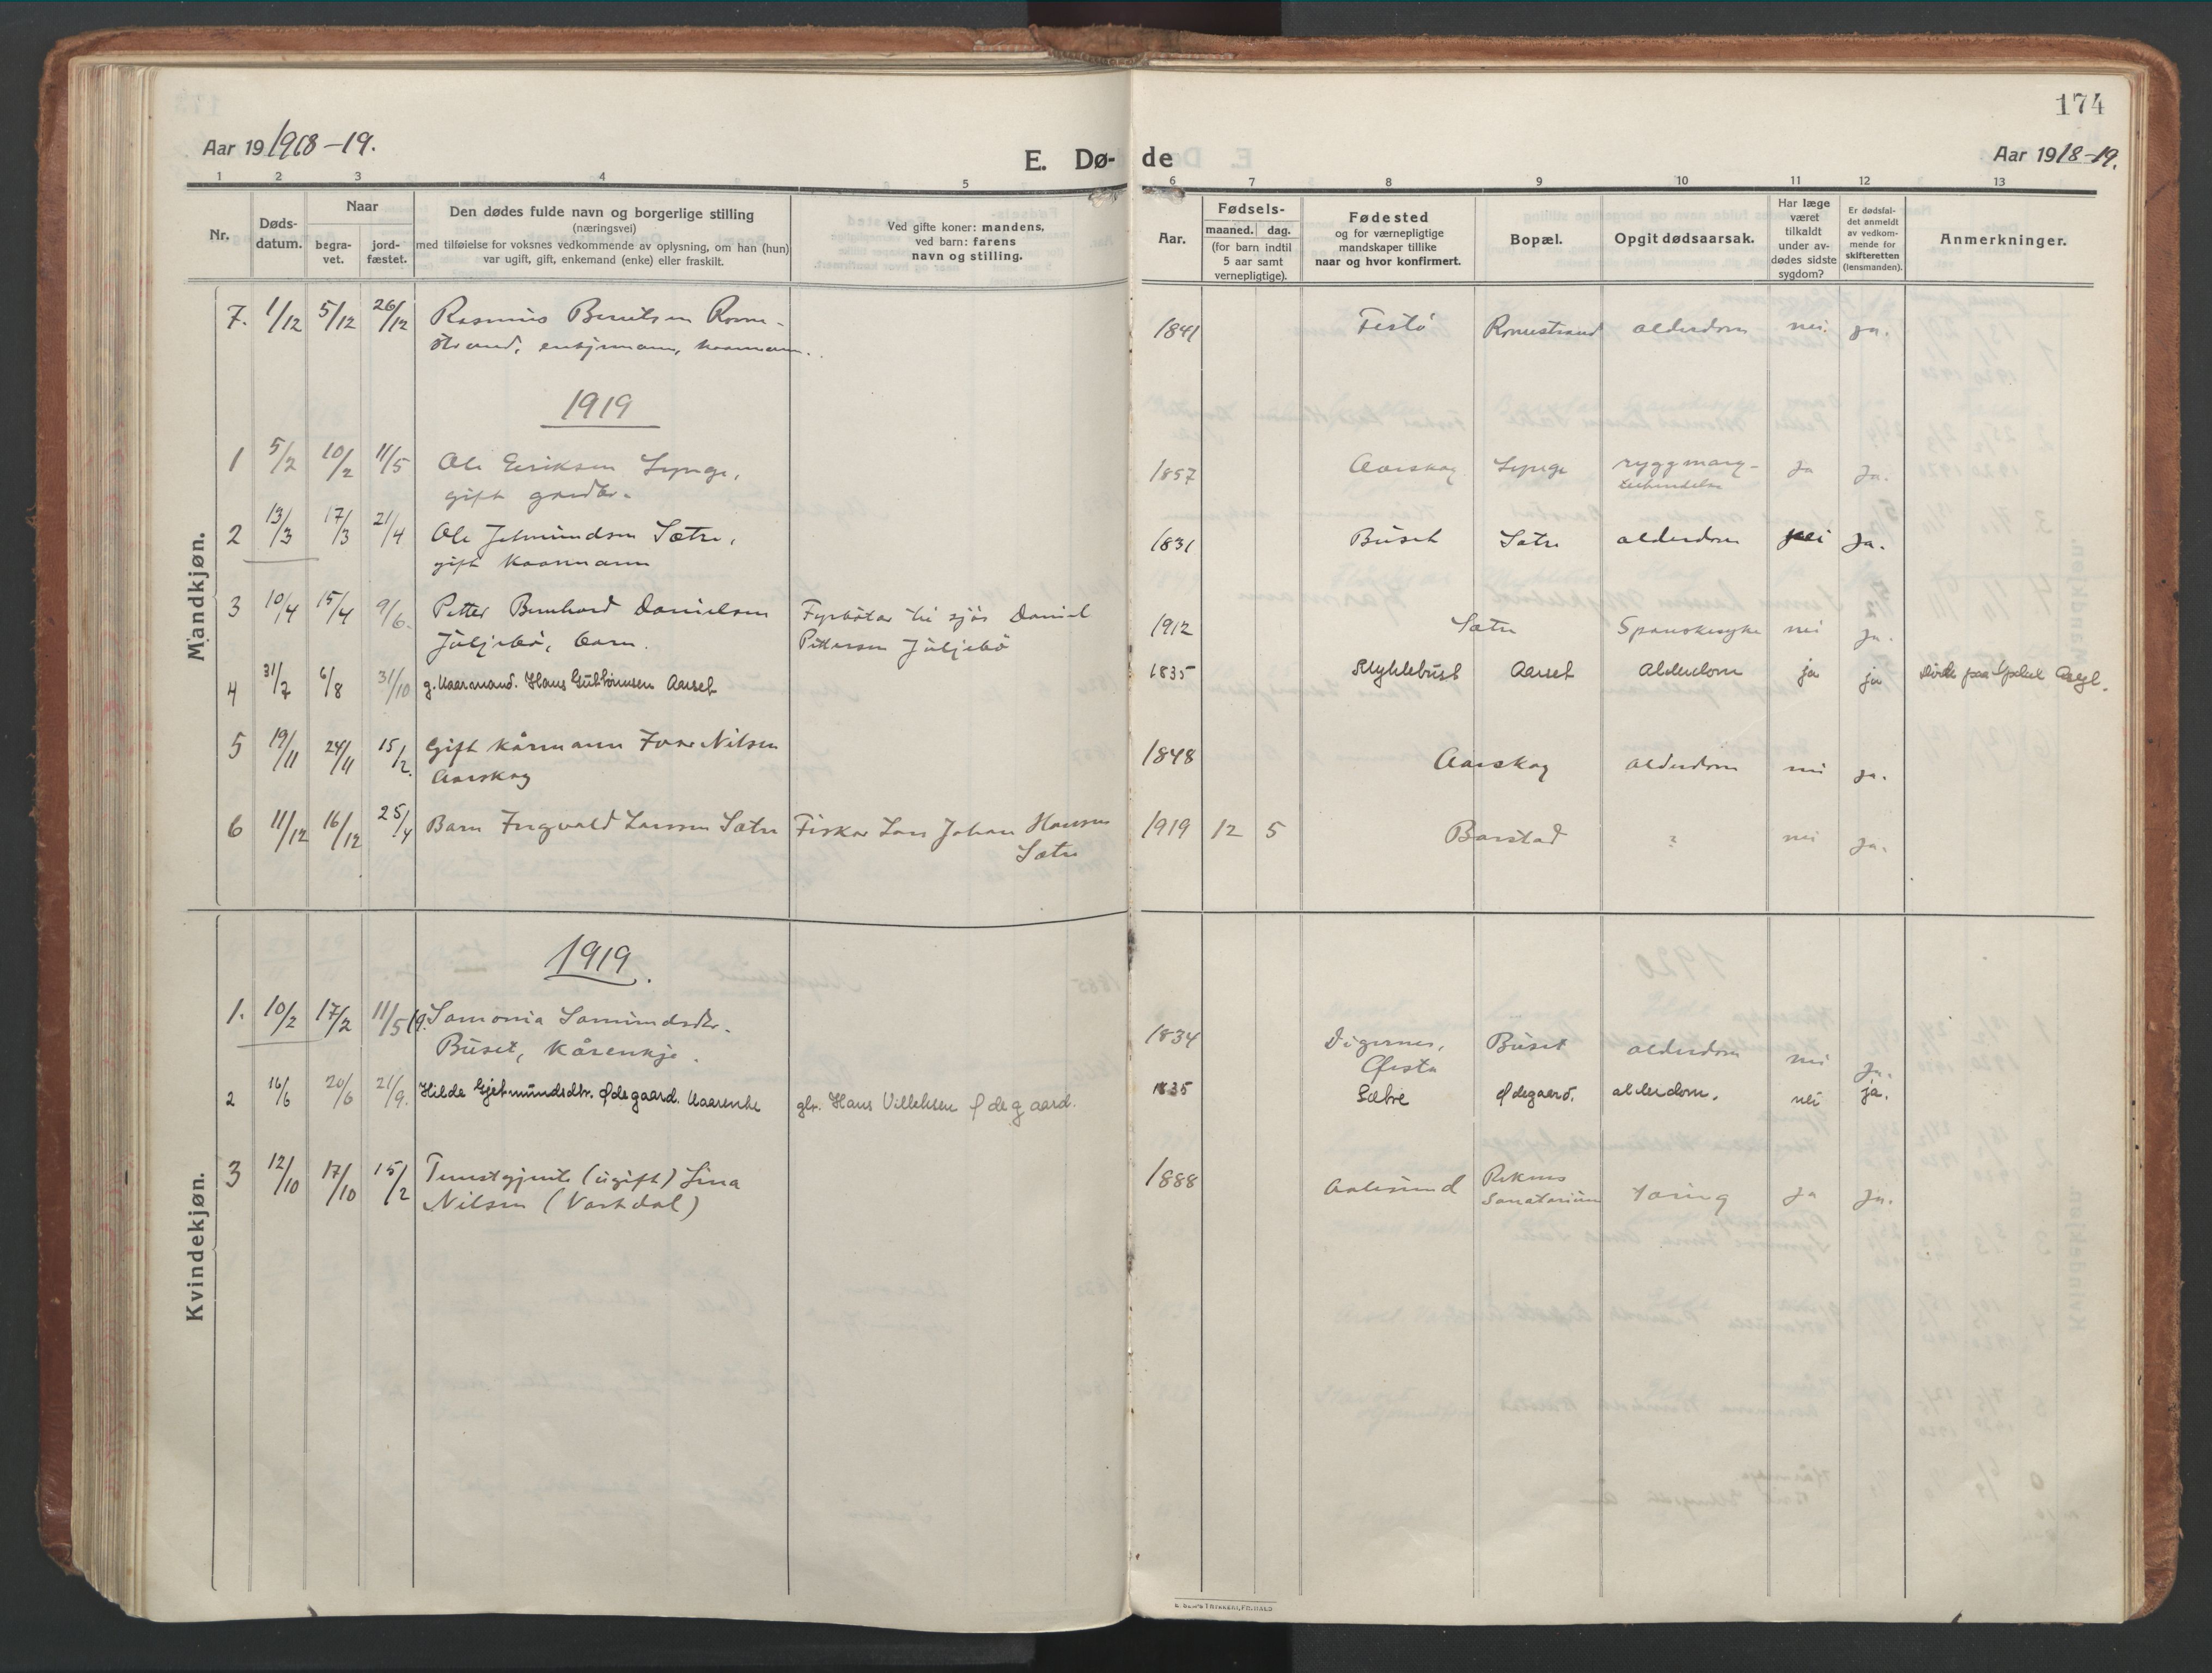 174
Aar 19 1918-19.
E. Dø-
de
Aar 1918-19.
1 2 3 4 5 6 7 8 9 10 11 12 13
Nr.
Døds-
datum.
Naar
begra-
vet.
jord-
fæstet.
Den dødes fulde navn og borgerlige stilling
(næringsvei)
med tilføielse for voksnes vedkommende av oplysning, om han (hun)
var ugift, gift, enkemand (enke) eller fraskilt.
Ved gifte koner: mandens,
ved barn: farens
navn og stilling.
Aar.
Fødsels-
maaned. dag.
(for barn indtil
5 aar samt
vernepligtige).
Fødested
og for værnepligtige
mandskaper tillike
naar og hvor konfirmert.
Bopæl.
Opgit dødsaarsak.
Har læge
været
tilkaldt
under av-
dødes sidste
sygdom?
Er dødsfal-
det anmeldt
av vedkom-
mende for
skifteretten
(lensmanden).
Anmerkninger.
Mandkjøn.
7. 1/12 5/12 26/12 Rasmus Berntsen Rome- 1841 Festö Romestrand alderdom nei. ja.
strand, enkjemann, kaarmann.
1919
1 5/2 10/2 11/5 Ole Eeriksen Lynge, 1857 Aarskog Lynge ryggmarg- Ja Ja.
gift gardbr.
2 13/3 17/3 21/4 Ole Jetmundsen Sætre, 1831 Buset Sætre alderdom nei Ja.
gift kaarmann
3 10/4 15/4 9/6. Petter Bernhard Danielsen Fyrbötar til sjös Daniel 1912 Sætre Spanskesyke nei ja.
Juljebö, barn. Pettersen Juljebö
4 31/7 6/8 31/10 g. Kaarmand. Hans Guttormsen Aarset 1835 Myklebust Aarset Alderdom ja ja Döde paa
5 19/11 24/11 15/2. Gift kårmann Ivar Nilsen 1848 Aarskog alderdom nei ja.
Aarskog
6 11/12 16/12 25/4 Barn Ingvald Larsen Sætre Fiskar Lars Johan Hansen 1919 12 5 Barstad ? nei ja.
Sætre
Kvindekjøn.
1919.
1. 10/2 17/2 11/5 19. Samonia Samundsdtr. 1834 Digernes, Buset alderdom nei ja.
Buset, kårenkje. Ørsta
2 16/6 20/6 21/9. Hilde Gjetmundsdtr. Ødegaard. Kaarenke gbr. Hans Villeksen Ødegaard. 1835 Sætre Ødegaard. alderdom. nei ja.
3 12/10 17/10 15/2 Tenestgjente (ugift) Lina 1888 Aalesund Reknes Sanatorium Tæring Ja Ja.
Nilsen (Vartdal)